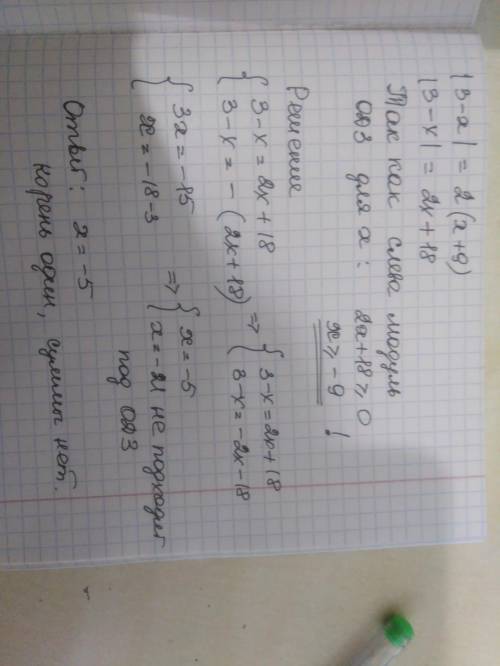 |3-x| = 2(x+9)
|3-x| = 2x+18
Так как слева модуль
ОДЗ для x: 2x+18 ≥ 0
x ≥ -9 !
Решение
{ 3-x = 2x+18
{ 3-x = -(2x+18) => { 3-x = 2x+18
{ 3-x = -2x-18
{ 3x = -15
{ x = -18-3 => { x = -5
{ x = -21 не подходит
под ОДЗ
Ответ: x = -5
корень один, суммы нет.